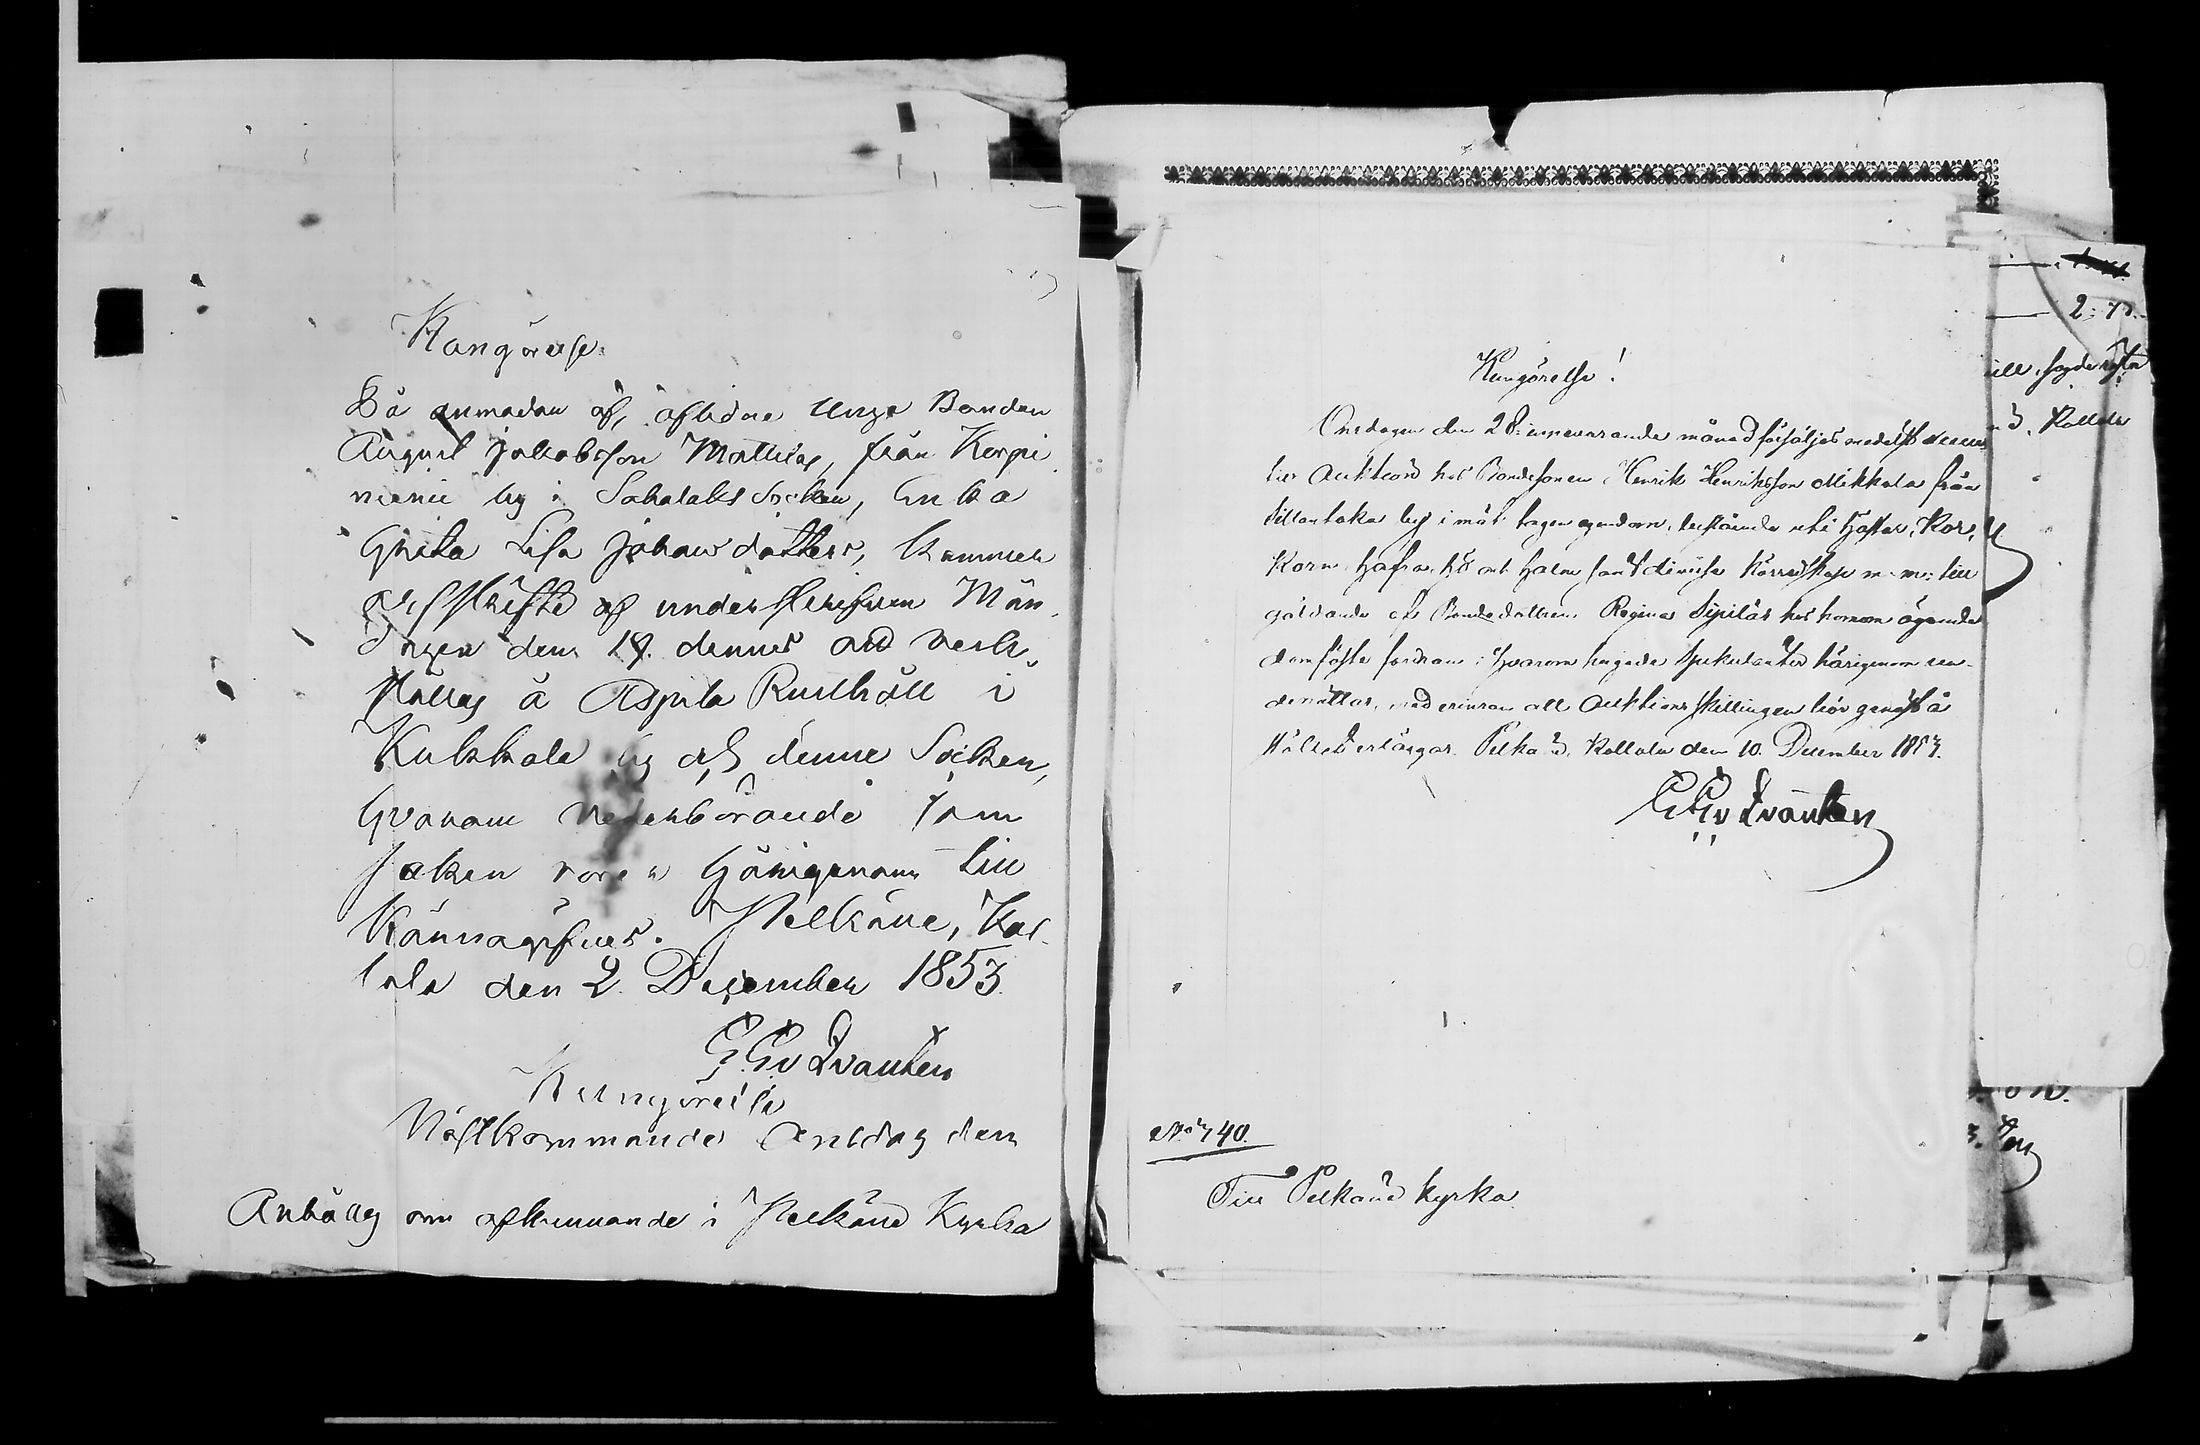 Kungörelse.
På anmodan af, aflidne Unge Bonden
August Jakobsson Mattilas, från Kerpi
by i Sahalaks Socken, Enka
Greta Lisa Johansdotter, kommer
arfskifte af undertecknad Mån-
dagen den 19. dennes at verk-
ställas å Aspila Rusthåll i
Kukkola by och denne Socken,
hvarom vederbörande som
saken rörer härigenom till
kännagifves. Pelkäne, Kol-
lola den 2. December 1853.
G. G. v Qvanten
Kungörelse
Nästkommande Onsdag den
Anhålles om afkunnande i Pelkäne Kyrka
Kungörelse!
Onsdagen den 28: innevarande månad försäljes medelst
lig Auktion hos Bondesonen Henrik Henriksson Mikkola från
Sillantaka by i mät tagen egendom, bestående uti Hästar, Kor,
Korn, Hafra, hö och halm samt diverse Körredskap m. m: till
gäldande af Bondedottren Regina Sipiläs hos honom ägande
domfäste fordran; hvarom hugade spekulanter härigenom un-
derrättas, med erinran att Auktions skillingen bör genast å
stället erläggas. Pelkäne, Kollola den 10. December 1853.
G. G. v Qvanten
No 740.
Till Pelkäne kyrka
2:
till
Kollola